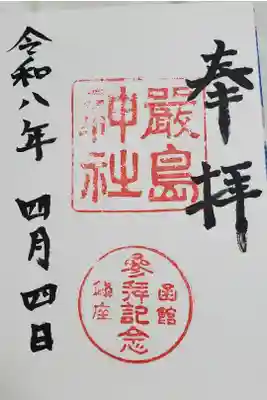 奉拝
嚴島
神社
函館
参拝記念
鎮座
令和八年 四月 四日